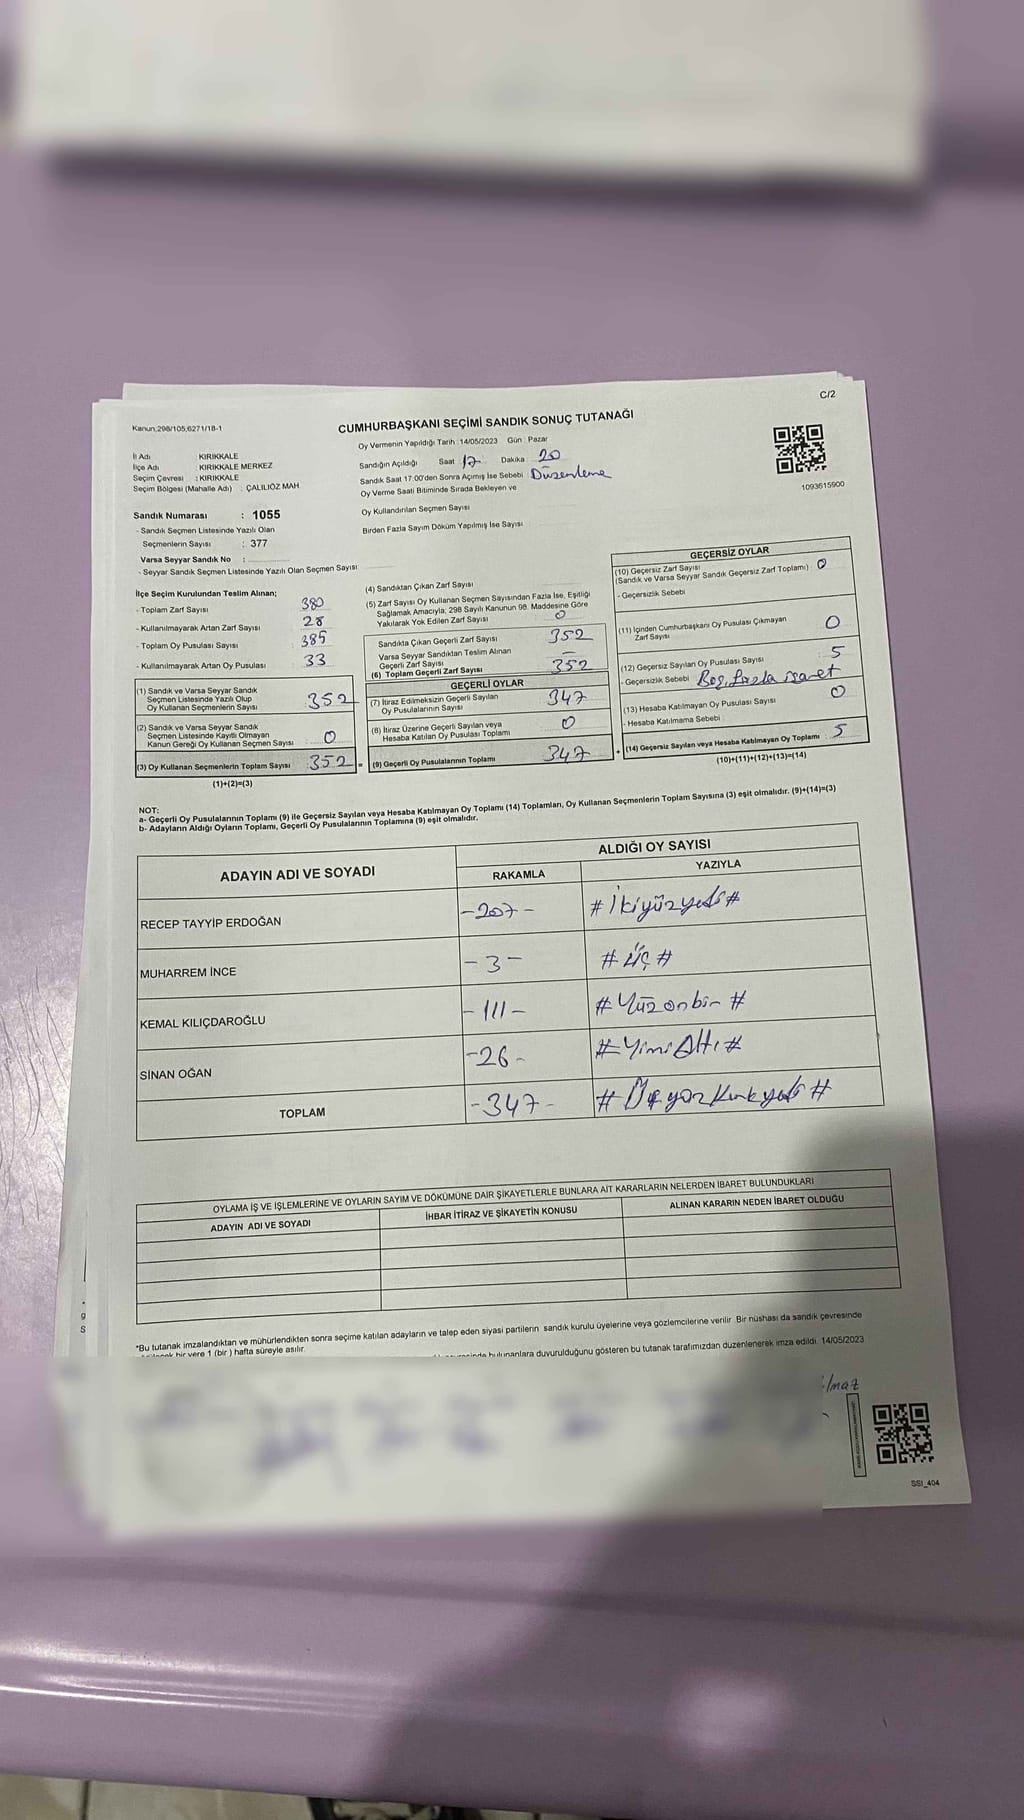 C/2
Kanun;298/105;6271/18-1
CUMHURBAŞKANI SEÇİMİ SANDIK SONUÇ TUTANAĞI
Oy Vermenin Yapıldığı Tarih :14/05/2023 Gün : Pazar
İl Adı : KIRIKKALE
İlçe Adı : KIRIKKALE MERKEZ
Seçim Çevresi : KIRIKKALE
Seçim Bölgesi (Mahalle Adı) : ÇALILIÖZ MAH.
Sandığın Açıldığı Saat 17 Dakika 20
Sandık Saat 17:00'den Sonra Açımış İse Sebebi Düzenleme
Oy Verme Saati Bitiminde Sırada Bekleyen ve
Oy Kullandırılan Seçmen Sayısı
Birden Fazla Sayım Döküm Yapılmış İse Sayısı
1093615900
Sandık Numarası : 1055
- Sandık Seçmen Listesinde Yazılı Olan
Seçmenlerin Sayısı : 377
Varsa Seyyar Sandık No :
- Seyyar Sandık Seçmen Listesinde Yazılı Olan Seçmen Sayısı:
İlçe Seçim Kurulundan Teslim Alınan;
- Toplam Zarf Sayısı : 380
- Kullanılmayarak Artan Zarf Sayısı : 28
- Toplam Oy Pusulası Sayısı : 385
- Kullanılmayarak Artan Oy Pusulası : 33
(1) Sandık ve Varsa Seyyar Sandık
Seçmen Listesinde Yazılı Olup
Oy Kullanan Seçmenlerin Sayısı 352
(2) Sandık ve Varsa Seyyar Sandık
Seçmen Listesinde Kayıtlı Olmayan
Kanun Gereği Oy Kullanan Seçmen Sayısı 0
(3) Oy Kullanan Seçmenlerin Toplam Sayısı 352 =
(1)+(2)=(3)
(4) Sandıktan Çıkan Zarf Sayısı
(5) Zarf Sayısı Oy Kullanan Seçmen Sayısından Fazla İse, Eşitliği
Sağlamak Amacıyla; 298 Sayılı Kanunun 98. Maddesine Göre
Yakılarak Yok Edilen Zarf Sayısı 0
Sandıkta Çıkan Geçerli Zarf Sayısı 352
Varsa Seyyar Sandıktan Teslim Alınan
Geçerli Zarf Sayısı –
(6) Toplam Geçerli Zarf Sayısı 352
GEÇERLİ OYLAR
(7) İtiraz Edilmeksizin Geçerli Sayılan
Oy Pusulalarının Sayısı 347
(8) İtiraz Üzerine Geçerli Sayılan veya
Hesaba Katılan Oy Pusulası Toplamı 0
(9) Geçerli Oy Pusulalarının Toplamı 347 +
GEÇERSİZ OYLAR
(10) Geçersiz Zarf Sayısı
(Sandık ve Varsa Seyyar Sandık Geçersiz Zarf Toplamı) : 0
- Geçersizlik Sebebi
(11) İçinden Cumhurbaşkanı Oy Pusulası Çıkmayan
Zarf Sayısı 0
(12) Geçersiz Sayılan Oy Pusulası Sayısı 5
- Geçersizlik Sebebi Boş, fazla işaret
(13) Hesaba Katılmayan Oy Pusulası Sayısı 0
- Hesaba Katılmama Sebebi :
(14) Geçersiz Sayılan veya Hesaba Katılmayan Oy Toplamı : 5
(10)+(11)+(12)+(13)=(14)
NOT:
a- Geçerli Oy Pusulalarının Toplamı (9) ile Geçersiz Sayılan veya Hesaba Katılmayan Oy Toplamı (14) Toplamları, Oy Kullanan Seçmenlerin Toplam Sayısına (3) eşit olmalıdır. (9)+(14)=(3)
b- Adayların Aldığı Oyların Toplamı, Geçerli Oy Pusulalarının Toplamına (9) eşit olmalıdır.
ADAYIN ADI VE SOYADI
ALDIĞI OY SAYISI
RAKAMLA YAZIYLA
RECEP TAYYİP ERDOĞAN -207- # İkiyüzyedi #
MUHARREM İNCE -3- # Üç #
KEMAL KILIÇDAROĞLU -111- # Yüzonbir #
SİNAN OĞAN -26- # YimiAltı #
TOPLAM -347- # Üçyüzkırkyedi #
OYLAMA İŞ VE İŞLEMLERİNE VE OYLARIN SAYIM VE DÖKÜMÜNE DAİR ŞİKAYETLERLE BUNLARA AİT KARARLARIN NELERDEN İBARET BULUNDUKLARI
ADAYIN ADI VE SOYADI İHBAR İTİRAZ VE ŞİKAYETİN KONUSU ALINAN KARARIN NEDEN İBARET OLDUĞU
*Bu tutanak imzalandıktan ve mühürlendikten sonra seçime katılan adayların ve talep eden siyasi partilerin sandık kurulu üyelerine veya gözlemcilerine verilir. Bir nüshası da sandık çevresinde
bir yere 1 (bir ) hafta süreyle asılır.
bulunanlara duyurulduğunu gösteren bu tutanak tarafımızdan düzenlenerek imza edildi. 14/05/2023
SSI_404